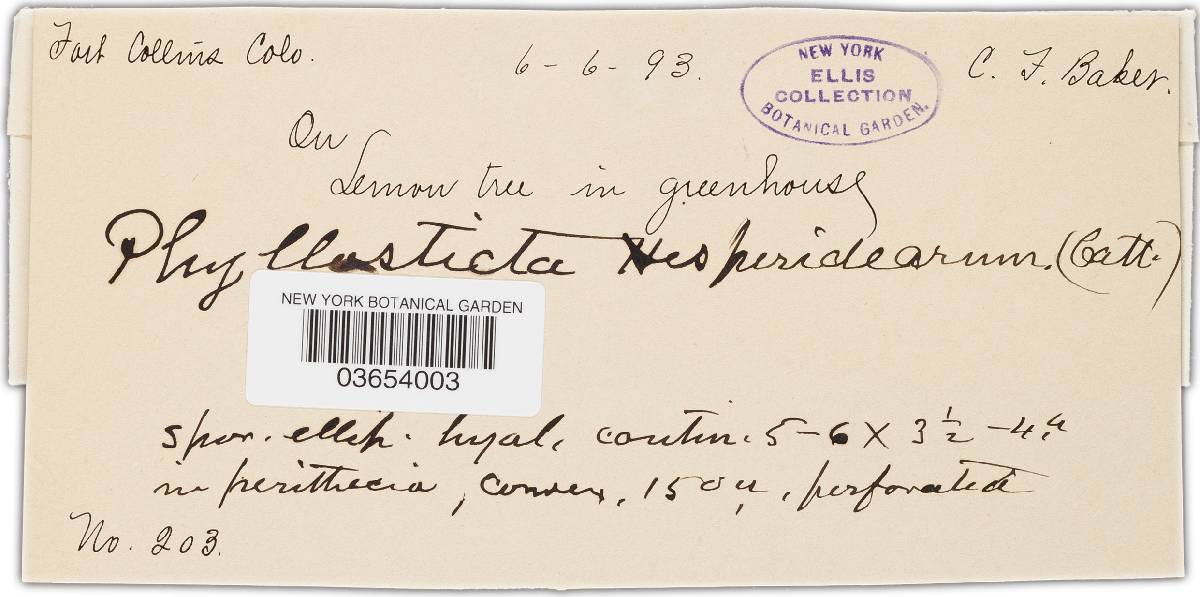 Fort Collins Colo.
6-6-93.
NEW YORK
ELLIS
COLLECTION
BOTANICAL GARDEN.
C. F. Baker.
On
Lemon tree in greenhouse
Phyllosticta Hesperidearum. (Catt.)
NEW YORK BOTANICAL GARDEN
03654003
spor. ellip. hyal. contin. 5-6 X 3 ½ -4. µ
in perithecia, convex, 150 µ, perforated
No. 203.